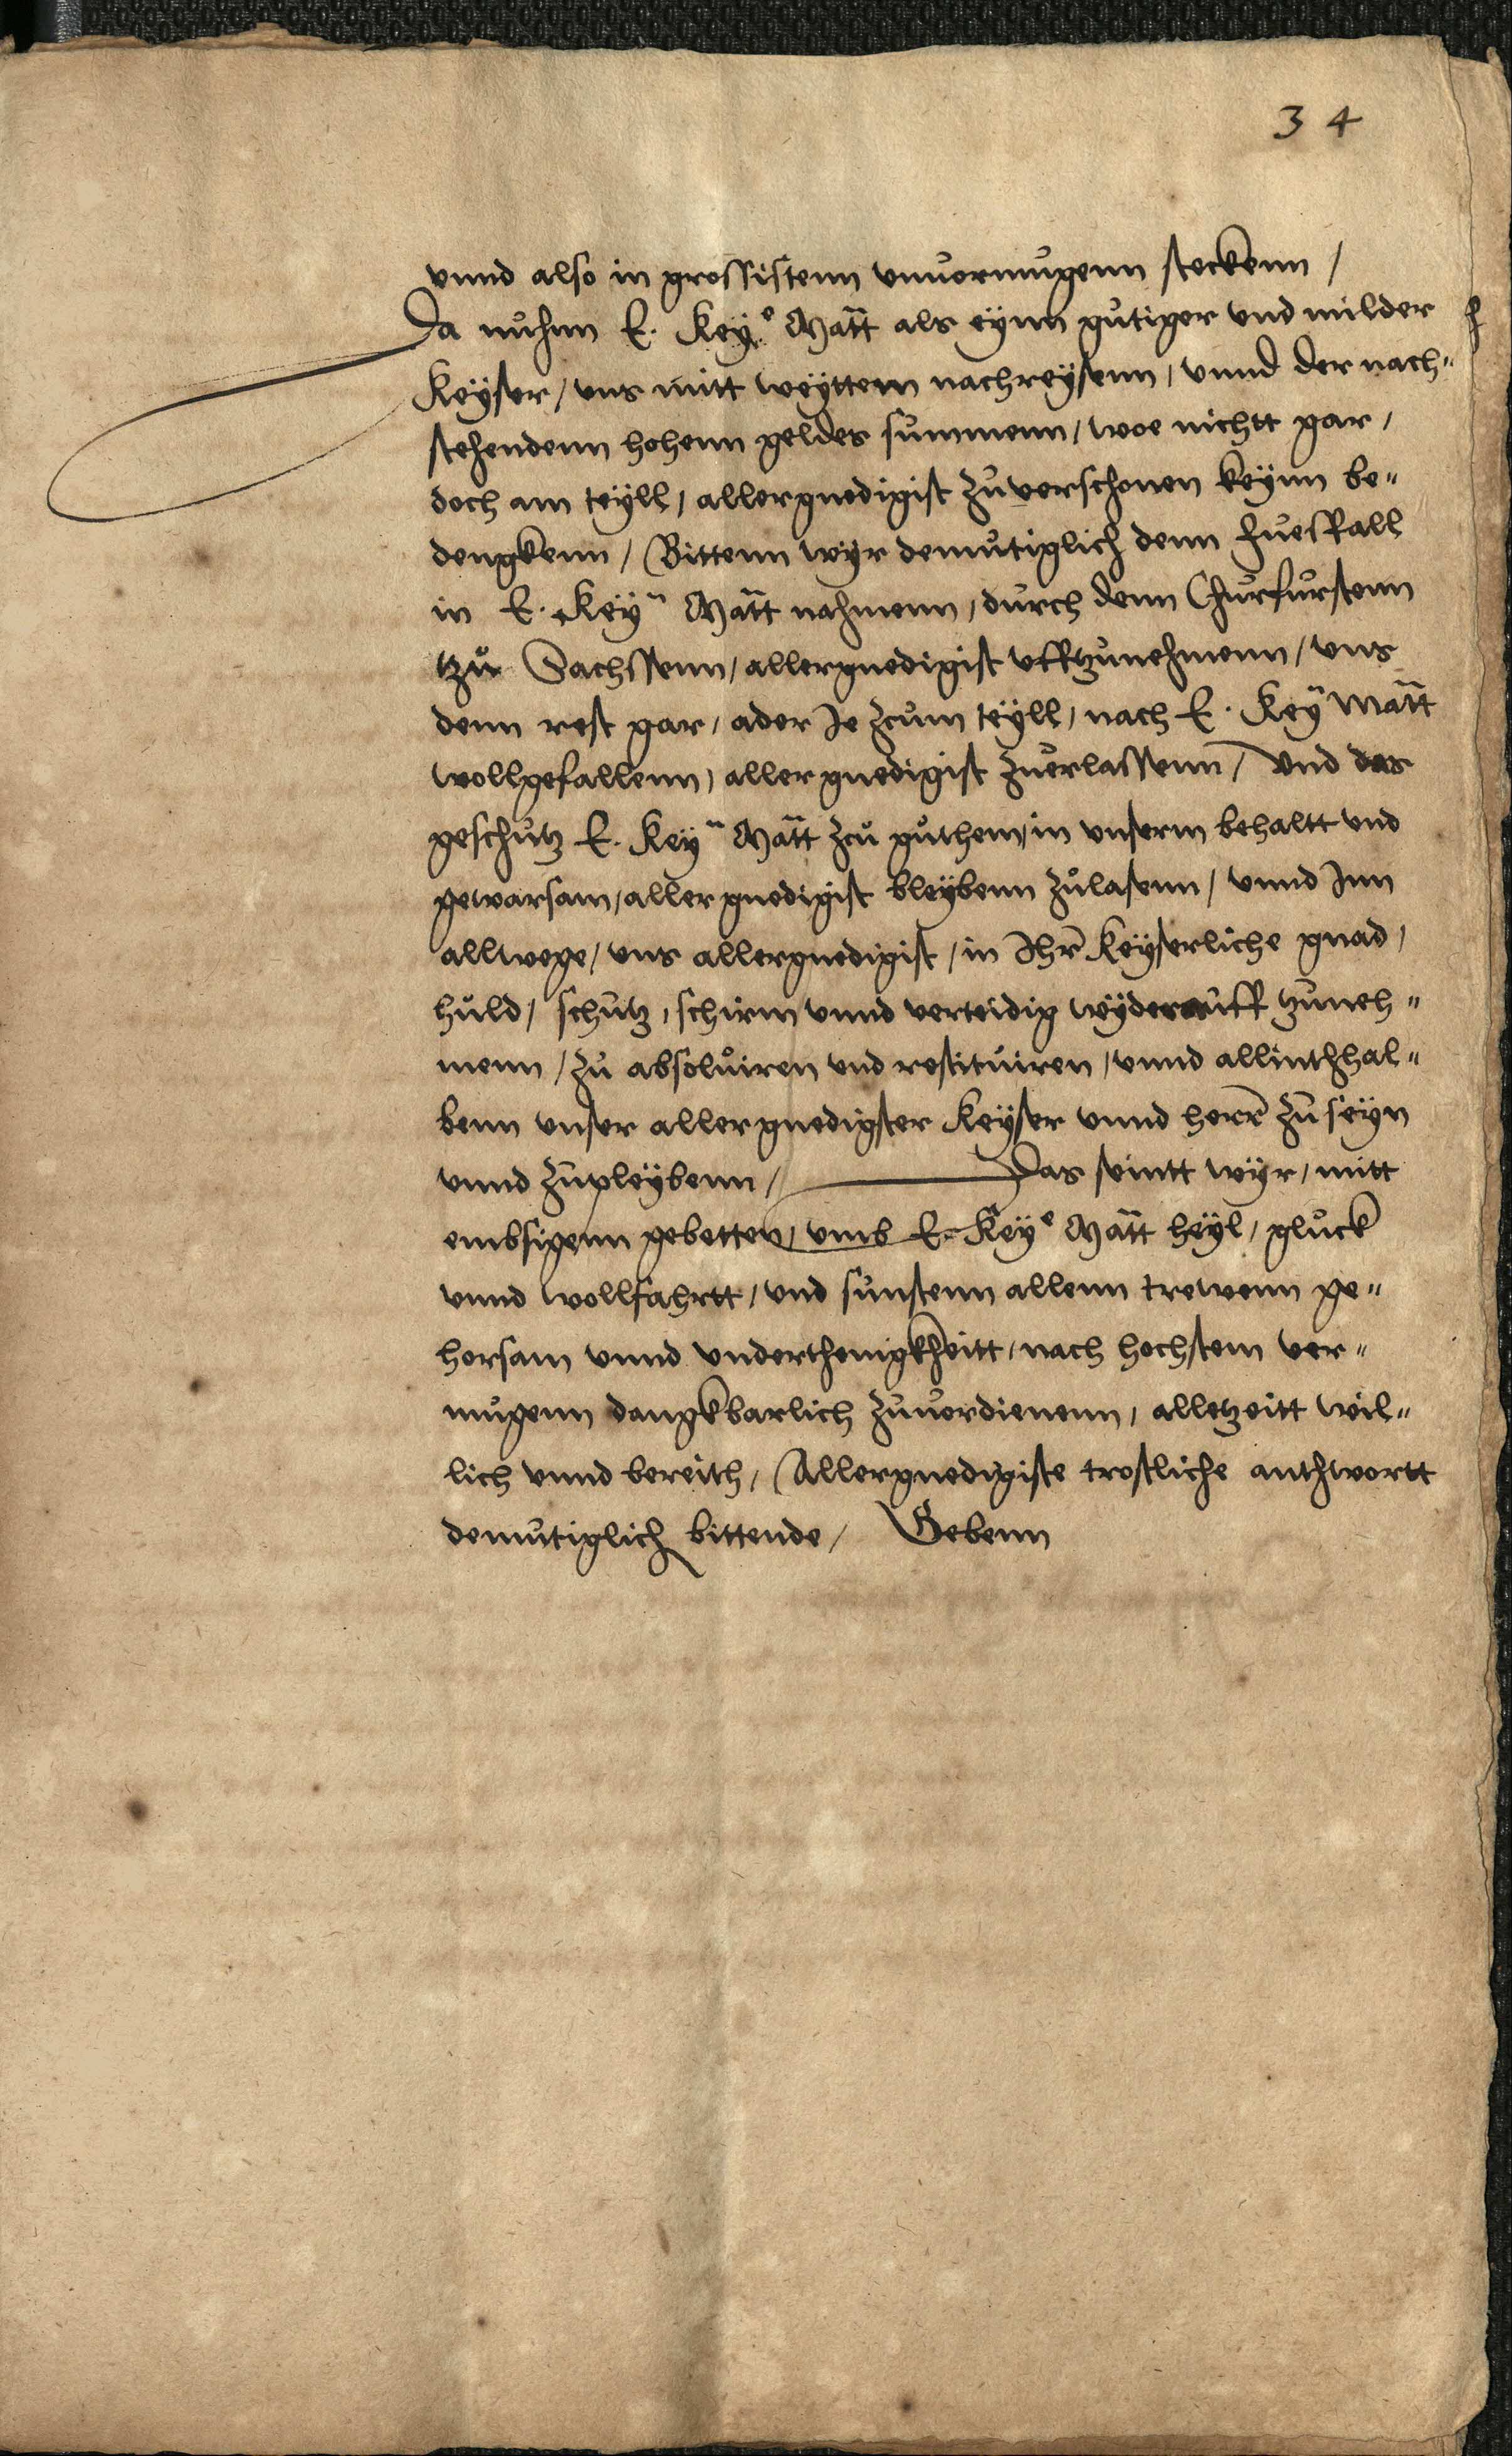 34
vnnd also in grossistenn vnuormugenn steckenn /
Da nuhnn E. Key.e Matt als eynn gutiger vnd milder
Keyser / vns mitt weyttern nachreysenn, vnnd der nach=
stehendenn hohenn geldes summenn / woe nichtt gar /
doch am teyll, allergnedigist zuverschonen keynn be=
dengkenn / Bittenn wyr demutiglich denn fuesfall
in E. Keyn Matt nahmenn, durch denn Churfurstenn
tzu Sachssenn, allergnedigist vfftzunehmenn / vns
denn rest gar, ader Je zcum teyll, nach E. Keyn Matt
wollgefallenn, allergnedigist zuerlassenn / vnd das
geschutz E. Keyn Matt zcu guthem, in vnserm behaltt vnd
gewarsam, allergnedigist bleybenn zulasenn / vnnd Inn
allwege / vns allergnedigist / in Ihr Keyserliche gnad,
huld / schutz, schirm vnnd verteidig wyderauff tzuneh=
menn / zu absoluiren vnd restituiren, vnnd allinthhal=
benn vnser allergnedigster Keyser vnnd herr zu seyn
vnnd zupleybenn / Das seintt wyr, mitt
embsigenn gebetten, vmb E. Keye Matt heyl, gluck
vnnd wollfahrtt, vnd sunstenn allenn trewenn ge=
horsam vnnd vnderthenigkheitt, nach hochstem ver=
mugenn dangkbarlich zuuordienenn, alletzeitt wil=
lich vnnd bereith, Allergnedigiste trostliche anthwortt
demutiglich bittende / Gebenn